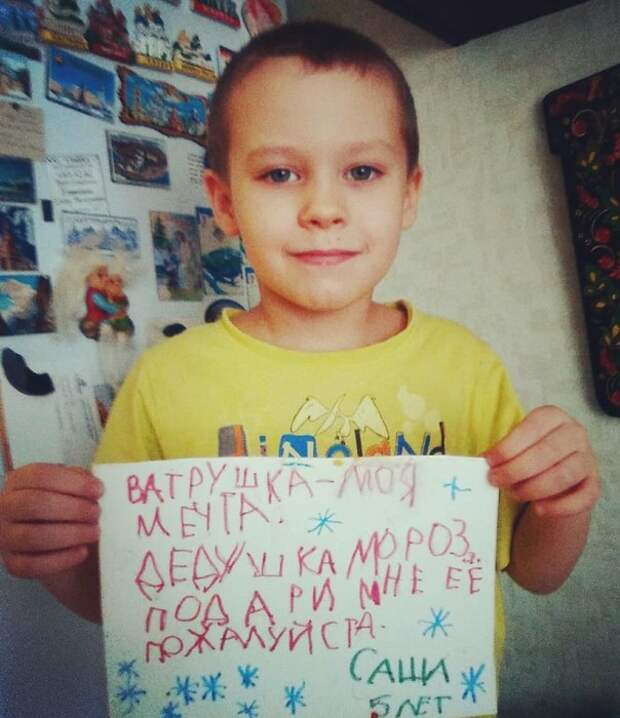 ВАТРУШКА-МОЯ
МЕЧТА.
ДЕДУШКА МОРОЗ,
ПОДАРИ МНЕ ЕЁ
ПОЖАЛУЙСТА.
САШИ
5 ЛЕТ